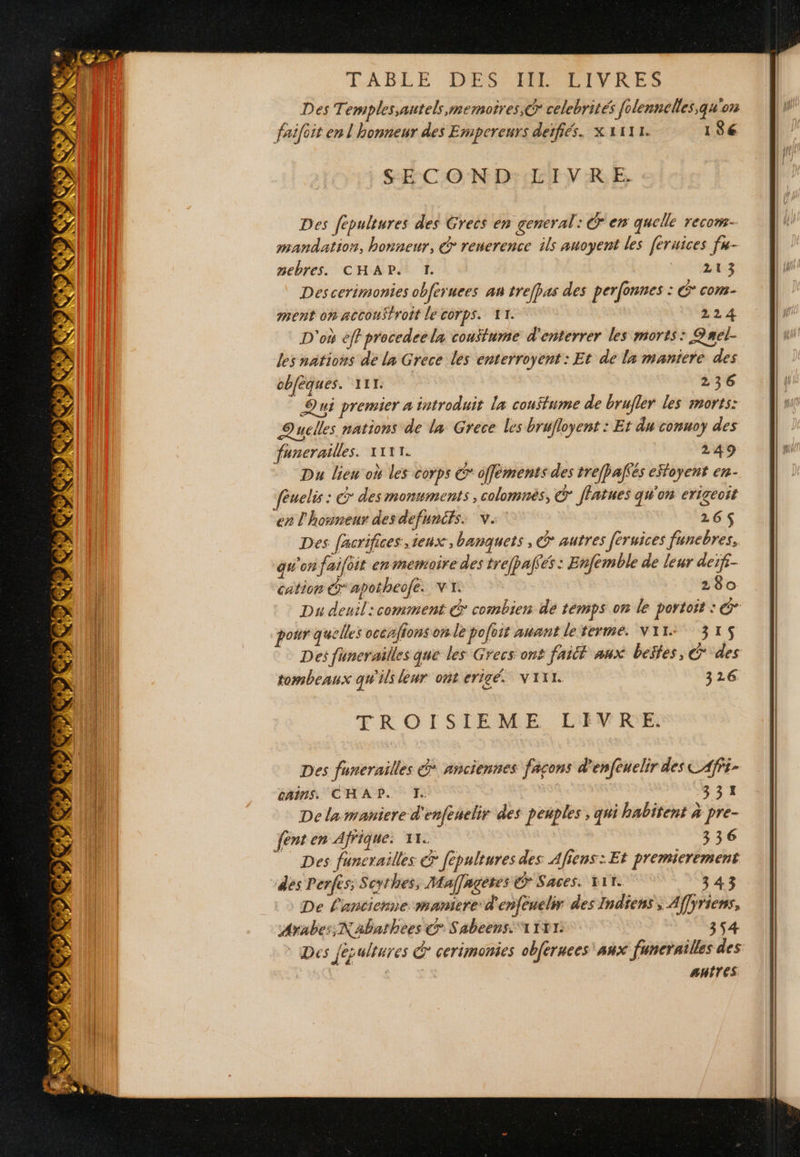 TABLE DES III. LIVRES
Des Temples,autels,memoires,& celebrités ſolennelles,qu'on
faiſoit en l honneur des Empereurs deifiés. XIIII. 186
SECOND LIVRE.
Des ſepultures des Grecs en general: & en quelle recom-
mandation, honneur, & reuerence ils auoyent les ſeruices fu-
nebres. CHAP. I. 213
Des cerimonies obſeruees au treſpas des perſonnes : & com-
ment on accouſtroit le corps. II. 224
D'où eſt procedee la couſtume d'enterrer les morts: Quel-
les nations de la Grece les enterroyent : Et de la maniere des
obſeques. III. 236
Qui premier a introduit la couſtume de bruſler les morts:
Quelles nations de la Grece les bruſloyent : Et du conuoy des
funerailles. IIII. 249
Du lieu où les corps & oſſements des treſpaſſés eſtoyent en-
ſeuelis : & des monuments , colomnes, & ſtatues qu'on erigeoit
en l'honneur des defuncts. V. 265
Des ſacrifices , ieux , banquets , & autres ſeruices funebres,
qu'on faiſoit en memoire des treſpaſſés : Enſemble de leur deifi-
cation & apotheoſe. VI. 280
Du deuil : comment & combien de temps on le portoit : &
pour quelles occaſions on le poſoit auant le terme. VII. 315
Des funerailles que les Grecs ont faict aux beſtes , & des
tombeaux qu'ils leur ont erigé. VIII. 326
TROISIEME LIVRE.
Des funerailles & anciennes façons d'enſeuelir des Afri-
cains. CHAP. I. 331
De la maniere d'enſeuelir des peuples , qui habitent à pre-
ſent en Afrique. II. 336
Des funerailles & ſepultures des Aſiens : Et premierement
des Perſes, Scythes, Maſſagetes & Saces. III. 343
De l'ancienne maniere d'enſeuelir des Indiens , Aſſyriens,
Arabes, Nabathees & Sabeens. IIII. 354
Des ſepultures & cerimonies obſeruees aux funerailles des
autres